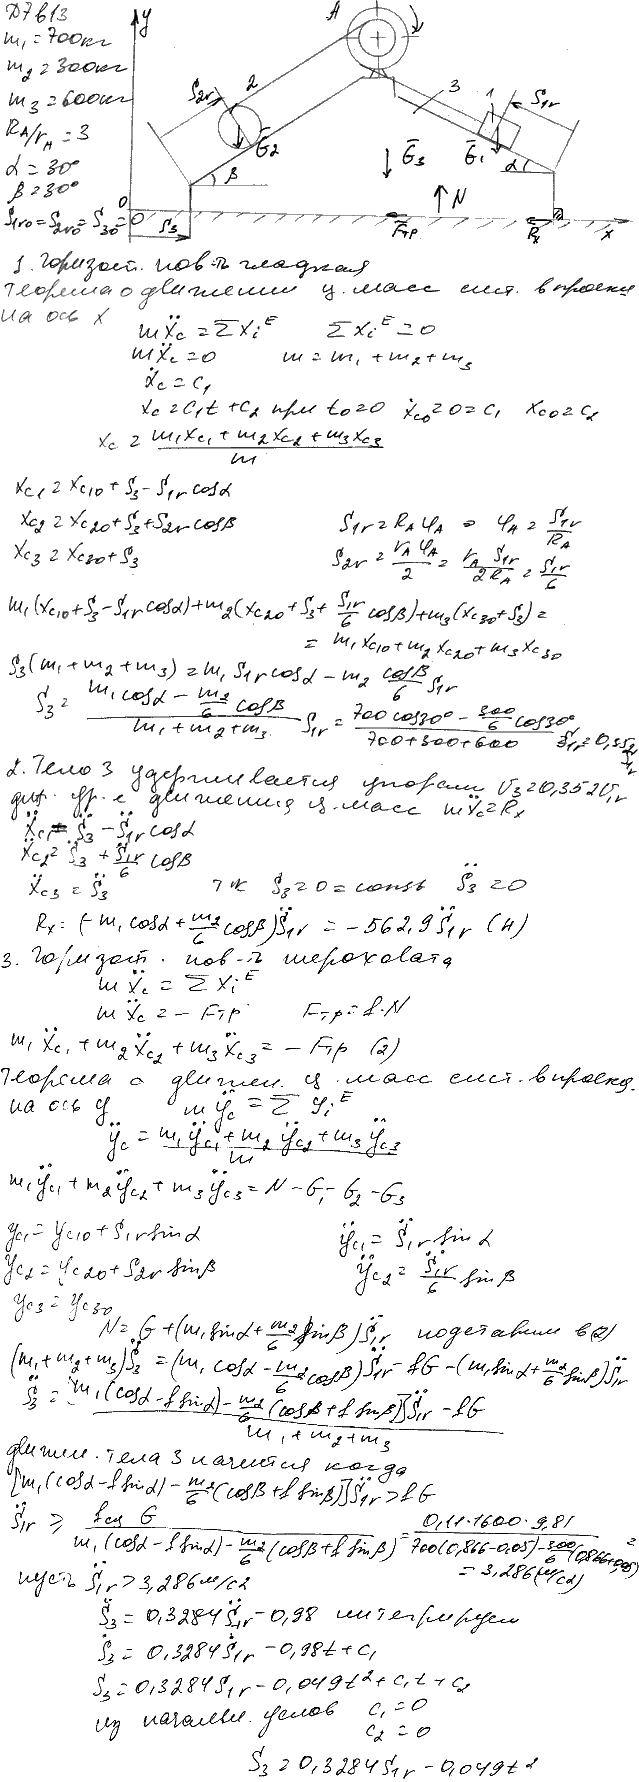 Д7 В13
m₁=700кг
m₂=300кг
m₃=600кг
R_A/r_A=3
α=30°
β=30°
S₁r₀=S₂r₀=S₃₀=0
y
A
2
S₂r
G̅₂
β
3
1
S₁r
G̅₁
G̅₃
α
N
0
S₃
F̅тр
R̅x
x
1. Горизонт. пов-ть гладкая
Теорема о движении ц. масс сист. в проекц
на ось x
mẍc = ΣXiᴱ ΣXiᴱ=0
mẍc=0 m=m₁+m₂+m₃
ẋc=C₁
xc=C₁t+C₂ при t₀=0 ẋc₀=0=C₁ xc₀=C₂
xc = (m₁xc₁+m₂xc₂+m₃xc₃)/m
xc₁=xc₁₀+S₃-S₁r cosα
xc₂=xc₂₀+S₃+S₂r cosβ S₁r=R_A φ_A ⇒ φ_A=S₁r/R_A
xc₃=xc₃₀+S₃ S₂r=r_A φ_A/2=r_A S₁r/2R_A=S₁r/6
m₁(xc₁₀+S₃-S₁r cosα)+m₂(xc₂₀+S₃+S₁r/6 cosβ)+m₃(xc₃₀+S₃)=
= m₁xc₁₀+m₂xc₂₀+m₃xc₃₀
S₃(m₁+m₂+m₃)=m₁S₁r cosα-m₂ cosβ/6 S₁r
S₃=(m₁cosα-m₂/6 cosβ)/(m₁+m₂+m₃) S₁r=(700cos30°-300/6 cos30°)/(700+300+600) S₁r=0,352 S₁r
2. Тело 3 удерживается упорами V₃=0,352V₁r
диф. ур. е движения ц. масс mẍc=Rx
ẍc₁=S̈₃-S̈₁r cosα
ẍc₂=S̈₃+S̈₁r/6 cosβ
ẍc₃=S̈₃ тк S₃=0=const S̈₃=0
Rx=(-m₁cosα+m₂/6 cosβ)S̈₁r=-562,9S̈₁r (Н)
3. Горизонт. пов-ть шероховата
mẍc=ΣXiᴱ
mẍc=-Fтр Fтр=f·N
m₁ẍc₁+m₂ẍc₂+m₃ẍc₃=-Fтр (2)
Теорема о движен. ц. масс сист. в проекц.
на ось y mÿc=Σyiᴱ
ÿc=(m₁ÿc₁+m₂ÿc₂+m₃ÿc₃)/m
m₁ÿc₁+m₂ÿc₂+m₃ÿc₃=N-G₁-G₂-G₃
yc₁=yc₁₀+S₁r sinα ÿc₁=S̈₁r sinα
yc₂=yc₂₀+S₂r sinβ ÿc₂=S̈₁r/6 sinβ
yc₃=yc₃₀
N=G+(m₁sinα+m₂/6 sinβ)S̈₁r подставим в (2)
(m₁+m₂+m₃)S̈₃=(m₁cosα-m₂/6 cosβ)S̈₁r-fG-(m₁sinα+m₂/6 sinβ)S̈₁r
S̈₃=([m₁(cosα-f sinα)-m₂/6(cosβ+f sinβ)]S̈₁r-fG)/(m₁+m₂+m₃)
движен. тела 3 начнется когда
[m₁(cosα-f sinα)-m₂/6(cosβ+f sinβ)]S̈₁r>fG
S̈₁r ≥ fсц G/(m₁(cosα-f sinα)-m₂/6(cosβ+f sinβ))=0,11·1600·9,81/(700(0,866-0,05)-300/6(0,866+0,05))=
=3,286(м/с2)
пусть S̈₁r>3,286м/с2
S̈₃=0,3284S̈₁r-0,98 интегрируем
Ṡ₃=0,3284Ṡ₁r-0,98t+C₁
S₃=0,3284S₁r-0,049t²+C₁t+C₂
из начальн. услов C₁=0
C₂=0
S₃=0,3284S₁r-0,049t²